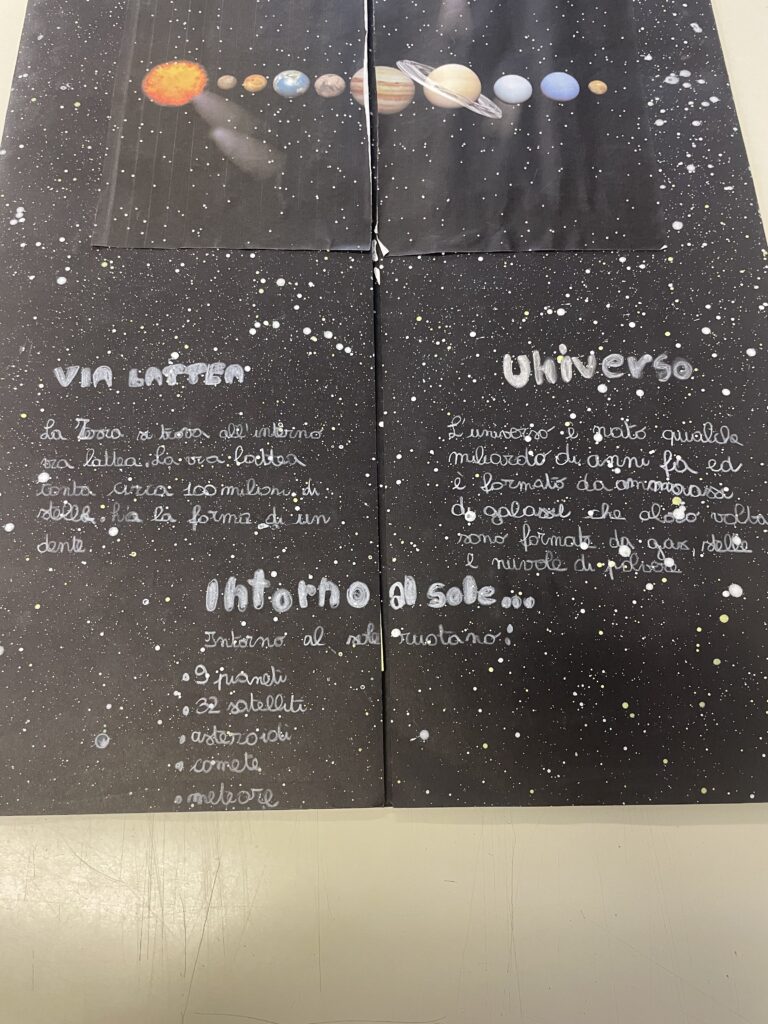 VIA LATTEA
La Terra si trova all'interno
via lattea. La via lattea
conta circa 100 milioni di
stelle. ha la forma di un
dente.
Universo
L'universo è nato qualche
miliardo di anni fa ed
è formato da ammasse
di galassie che a loro volta
sono formate da gas, stelle
e nuvole di polvere
Intorno al sole...
Intorno al sole ruotano:
• 9 pianeti
• 32 satelliti
• asteroidi
• comete
• meteore